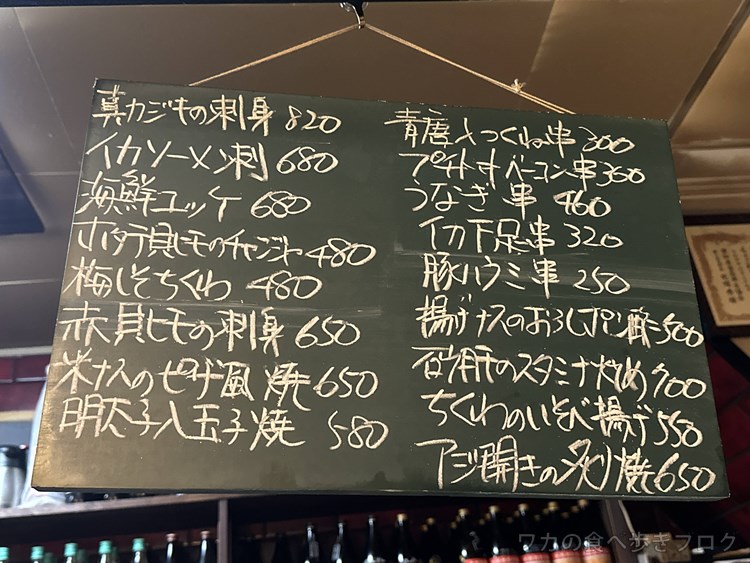 真カジキの刺身 820
イカソーメン刺 680
海鮮ユッケ 680
ホタテ貝ヒモのチャンジャ 480
梅しそちくわ 480
赤貝ヒモの刺身 650
米ナスのピザ風焼 650
明太子入玉子焼 580
青唐入つくね串 300
プチトマトベーコン串 300
うなぎ串 460
イカ下足串 320
豚ハラミ串 250
揚げナスのおろしポン酢 500
砂肝のスタミナ炒め 700
ちくわのいそべ揚げ 550
アジ開きの炙り焼 650
ワカの食べ歩きブログ